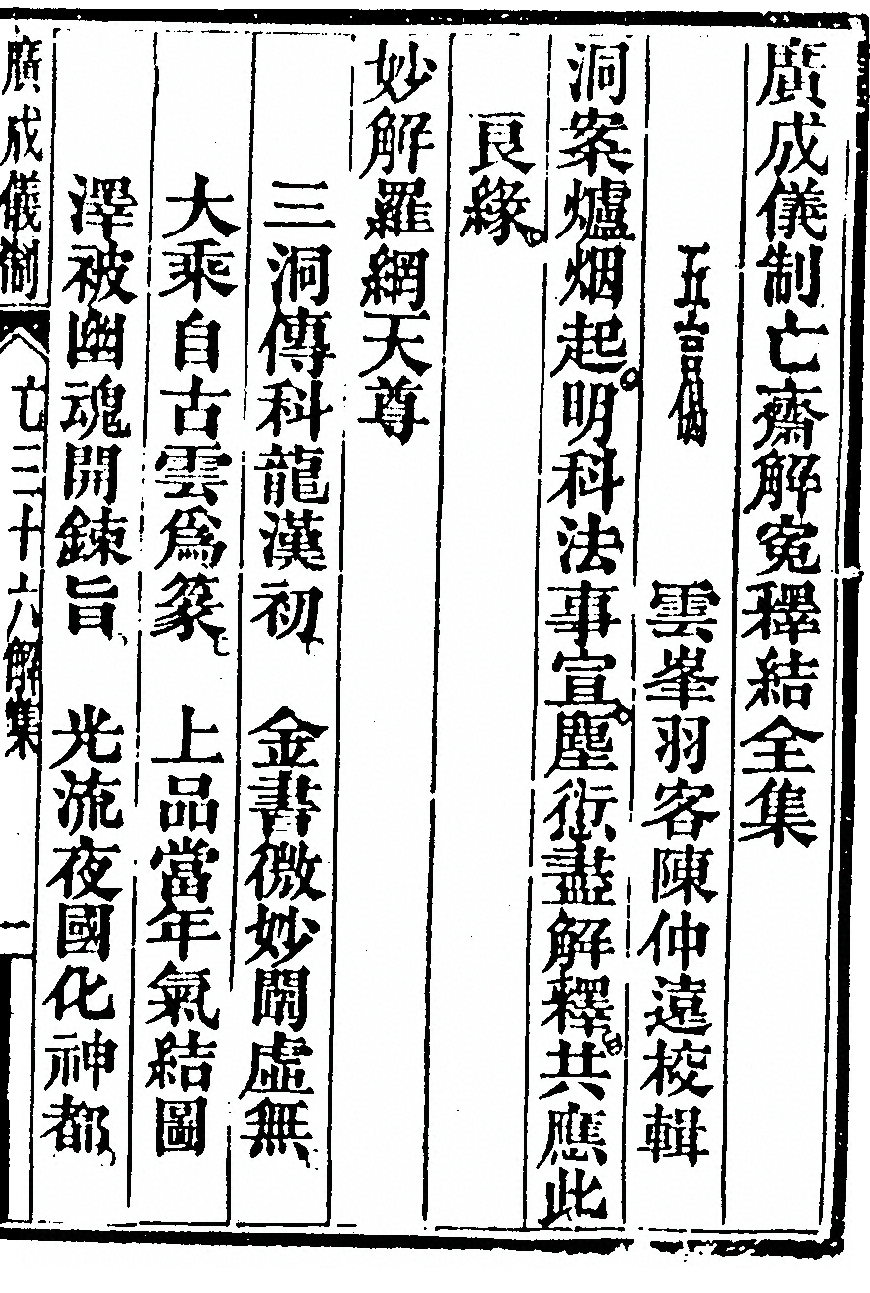 廣成儀制亡齋解冤釋結全集
五言偈 雲峯羽客陳仲遠校輯
洞案爐烟起明科法事宣塵愆盡解釋共應此
良緣
妙解羅網天尊
三洞傳科龍漢初 金書微妙闡虛無
大乘自古雲爲篆 上品當年氣結圖
澤被幽魂開鍊旨 光流夜國化神都
廣成儀制 亡三十六解集 一